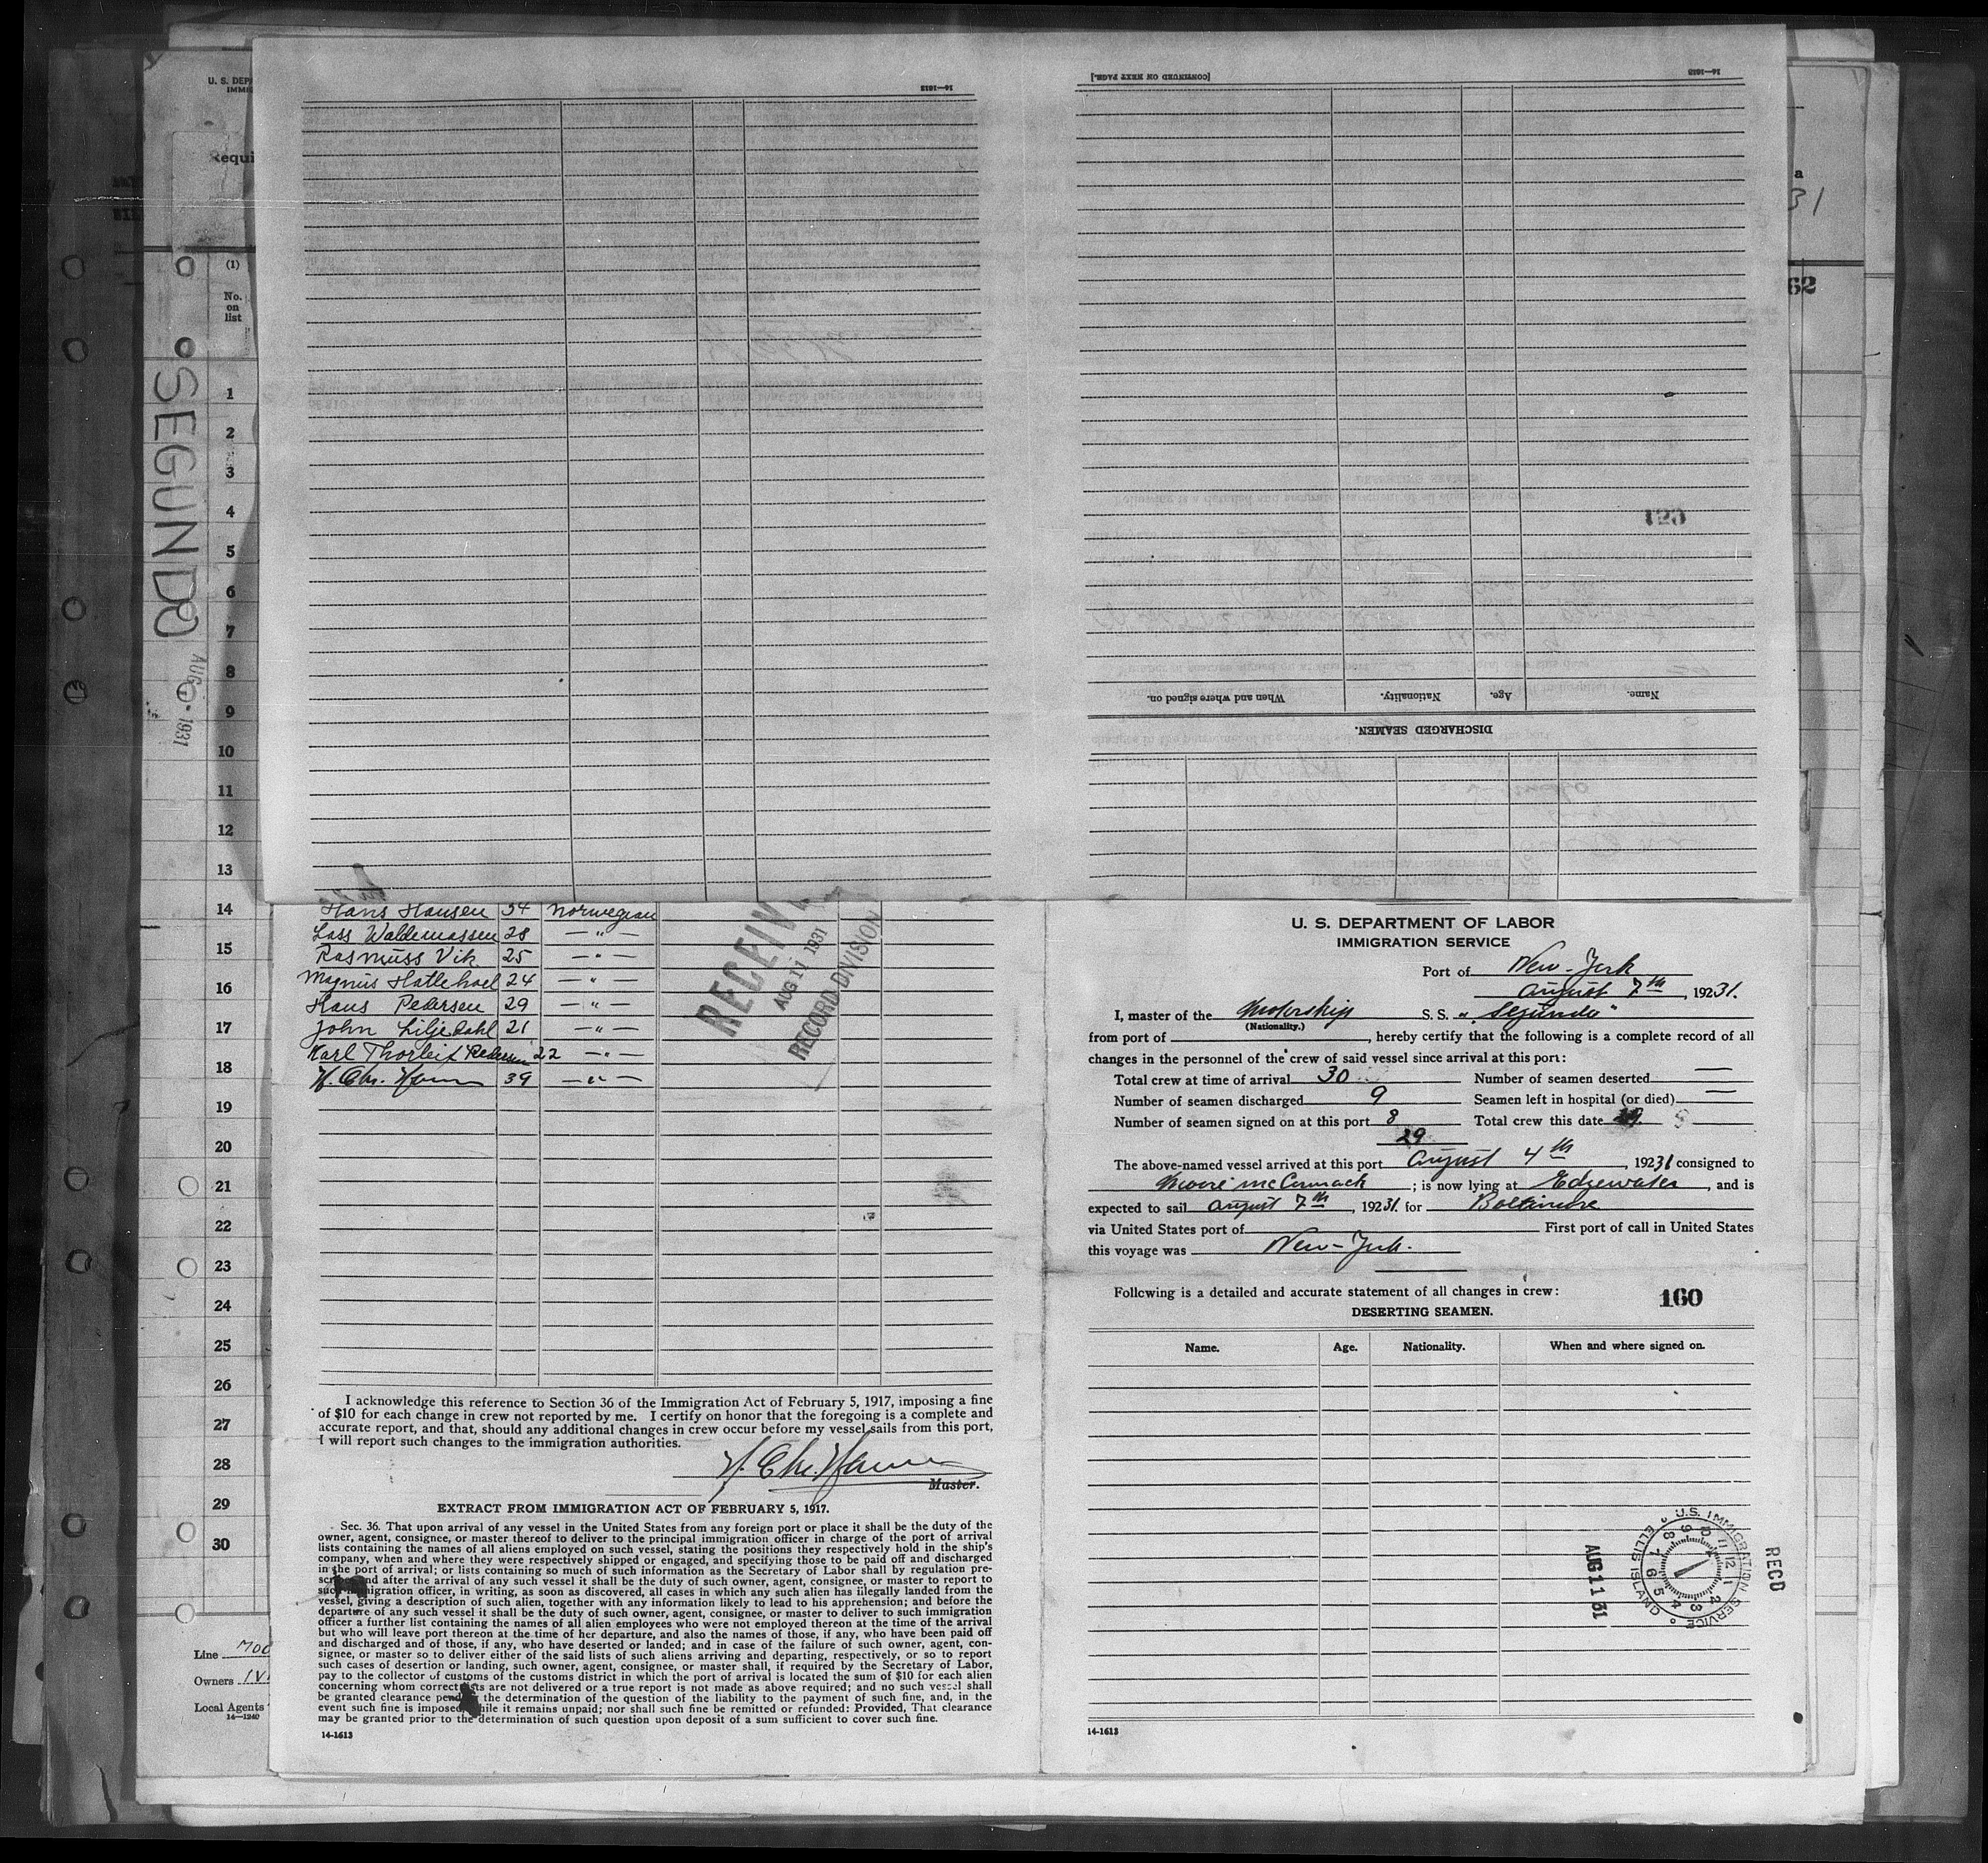 U. S. DEP
IMMIG
Requi
(1)
No.
on
list
1
2
3
4
5
6
7
8
9
10
11
12
13
14
15
16
17
18
19
20
21
22
23
24
25
26
27
28
29
30
SEGUNDO
AUG 1931
Line MOO
Owners IVA
Local Agents
14—1240
a
31
62
14—1613
[CONTINUED ON NEXT PAGE.]
14—1613
120
Name. Age. Nationality. When and where signed on.
DISCHARGED SEAMEN.
Hans Hansen 34 Norwegian
Lass Waldemassen 28 — " —
Rasmuss Vik 25 — " —
Magnus Hatlehoel 24 — " —
Hans Pedersen 29 — " —
John Liljedahl 21 — " —
Karl Thorleif Pedersen 22 — " —
H. Chr. Hansen 39 — " —
RECEIVE
AUG 11 1931
RECORD DIVISION
I acknowledge this reference to Section 36 of the Immigration Act of February 5, 1917, imposing a fine
of $10 for each change in crew not reported by me. I certify on honor that the foregoing is a complete and
accurate report, and that, should any additional changes in crew occur before my vessel sails from this port,
I will report such changes to the immigration authorities.
H. Chr. Hansen
Master.
EXTRACT FROM IMMIGRATION ACT OF FEBRUARY 5, 1917.
Sec. 36. That upon arrival of any vessel in the United States from any foreign port or place it shall be the duty of the
owner, agent, consignee, or master thereof to deliver to the principal immigration officer in charge of the port of arrival
lists containing the names of all aliens employed on such vessel, stating the positions they respectively hold in the ship's
company, when and where they were respectively shipped or engaged, and specifying those to be paid off and discharged
in the port of arrival; or lists containing so much of such information as the Secretary of Labor shall by regulation pre-
scribe; and after the arrival of any such vessel it shall be the duty of such owner, agent, consignee, or master to report to
such immigration officer, in writing, as soon as discovered, all cases in which any such alien has illegally landed from the
vessel, giving a description of such alien, together with any information likely to lead to his apprehension; and before the
departure of any such vessel it shall be the duty of such owner, agent, consignee, or master to deliver to such immigration
officer a further list containing the names of all alien employees who were not employed thereon at the time of the arrival
but who will leave port thereon at the time of her departure, and also the names of those, if any, who have been paid off
and discharged and of those, if any, who have deserted or landed; and in case of the failure of such owner, agent, con-
signee, or master so to deliver either of the said lists of such aliens arriving and departing, respectively, or so to report
such cases of desertion or landing, such owner, agent, consignee, or master shall, if required by the Secretary of Labor,
pay to the collector of customs of the customs district in which the port of arrival is located the sum of $10 for each alien
concerning whom correct lists are not delivered or a true report is not made as above required; and no such vessel shall
be granted clearance pending the determination of the question of the liability to the payment of such fine, and, in the
event such fine is imposed, while it remains unpaid; nor shall such fine be remitted or refunded: Provided, That clearance
may be granted prior to the determination of such question upon deposit of a sum sufficient to cover such fine.
14-1613
U. S. DEPARTMENT OF LABOR
IMMIGRATION SERVICE
Port of New-York
August 7th, 19231.
I, master of the Motorship S. S. "Segundo"
(Nationality.)
from port of , hereby certify that the following is a complete record of all
changes in the personnel of the crew of said vessel since arrival at this port:
Total crew at time of arrival 30 Number of seamen deserted —
Number of seamen discharged 9 Seamen left in hospital (or died) —
Number of seamen signed on at this port 8 Total crew this date 29
29
The above-named vessel arrived at this port August 4th, 19231 consigned to
Moore McCormack; is now lying at Edgewater, and is
expected to sail August 7th, 19231. for Baltimore
via United States port of First port of call in United States
this voyage was New-York.
Following is a detailed and accurate statement of all changes in crew:
160
DESERTING SEAMEN.
Name. Age. Nationality. When and where signed on.
U.S. IMMIGRATION SERVICE ELLIS ISLAND
1 2 3 4 5 6 7 8 9 10 11 12
AUG 11 31
RECD
14-1613